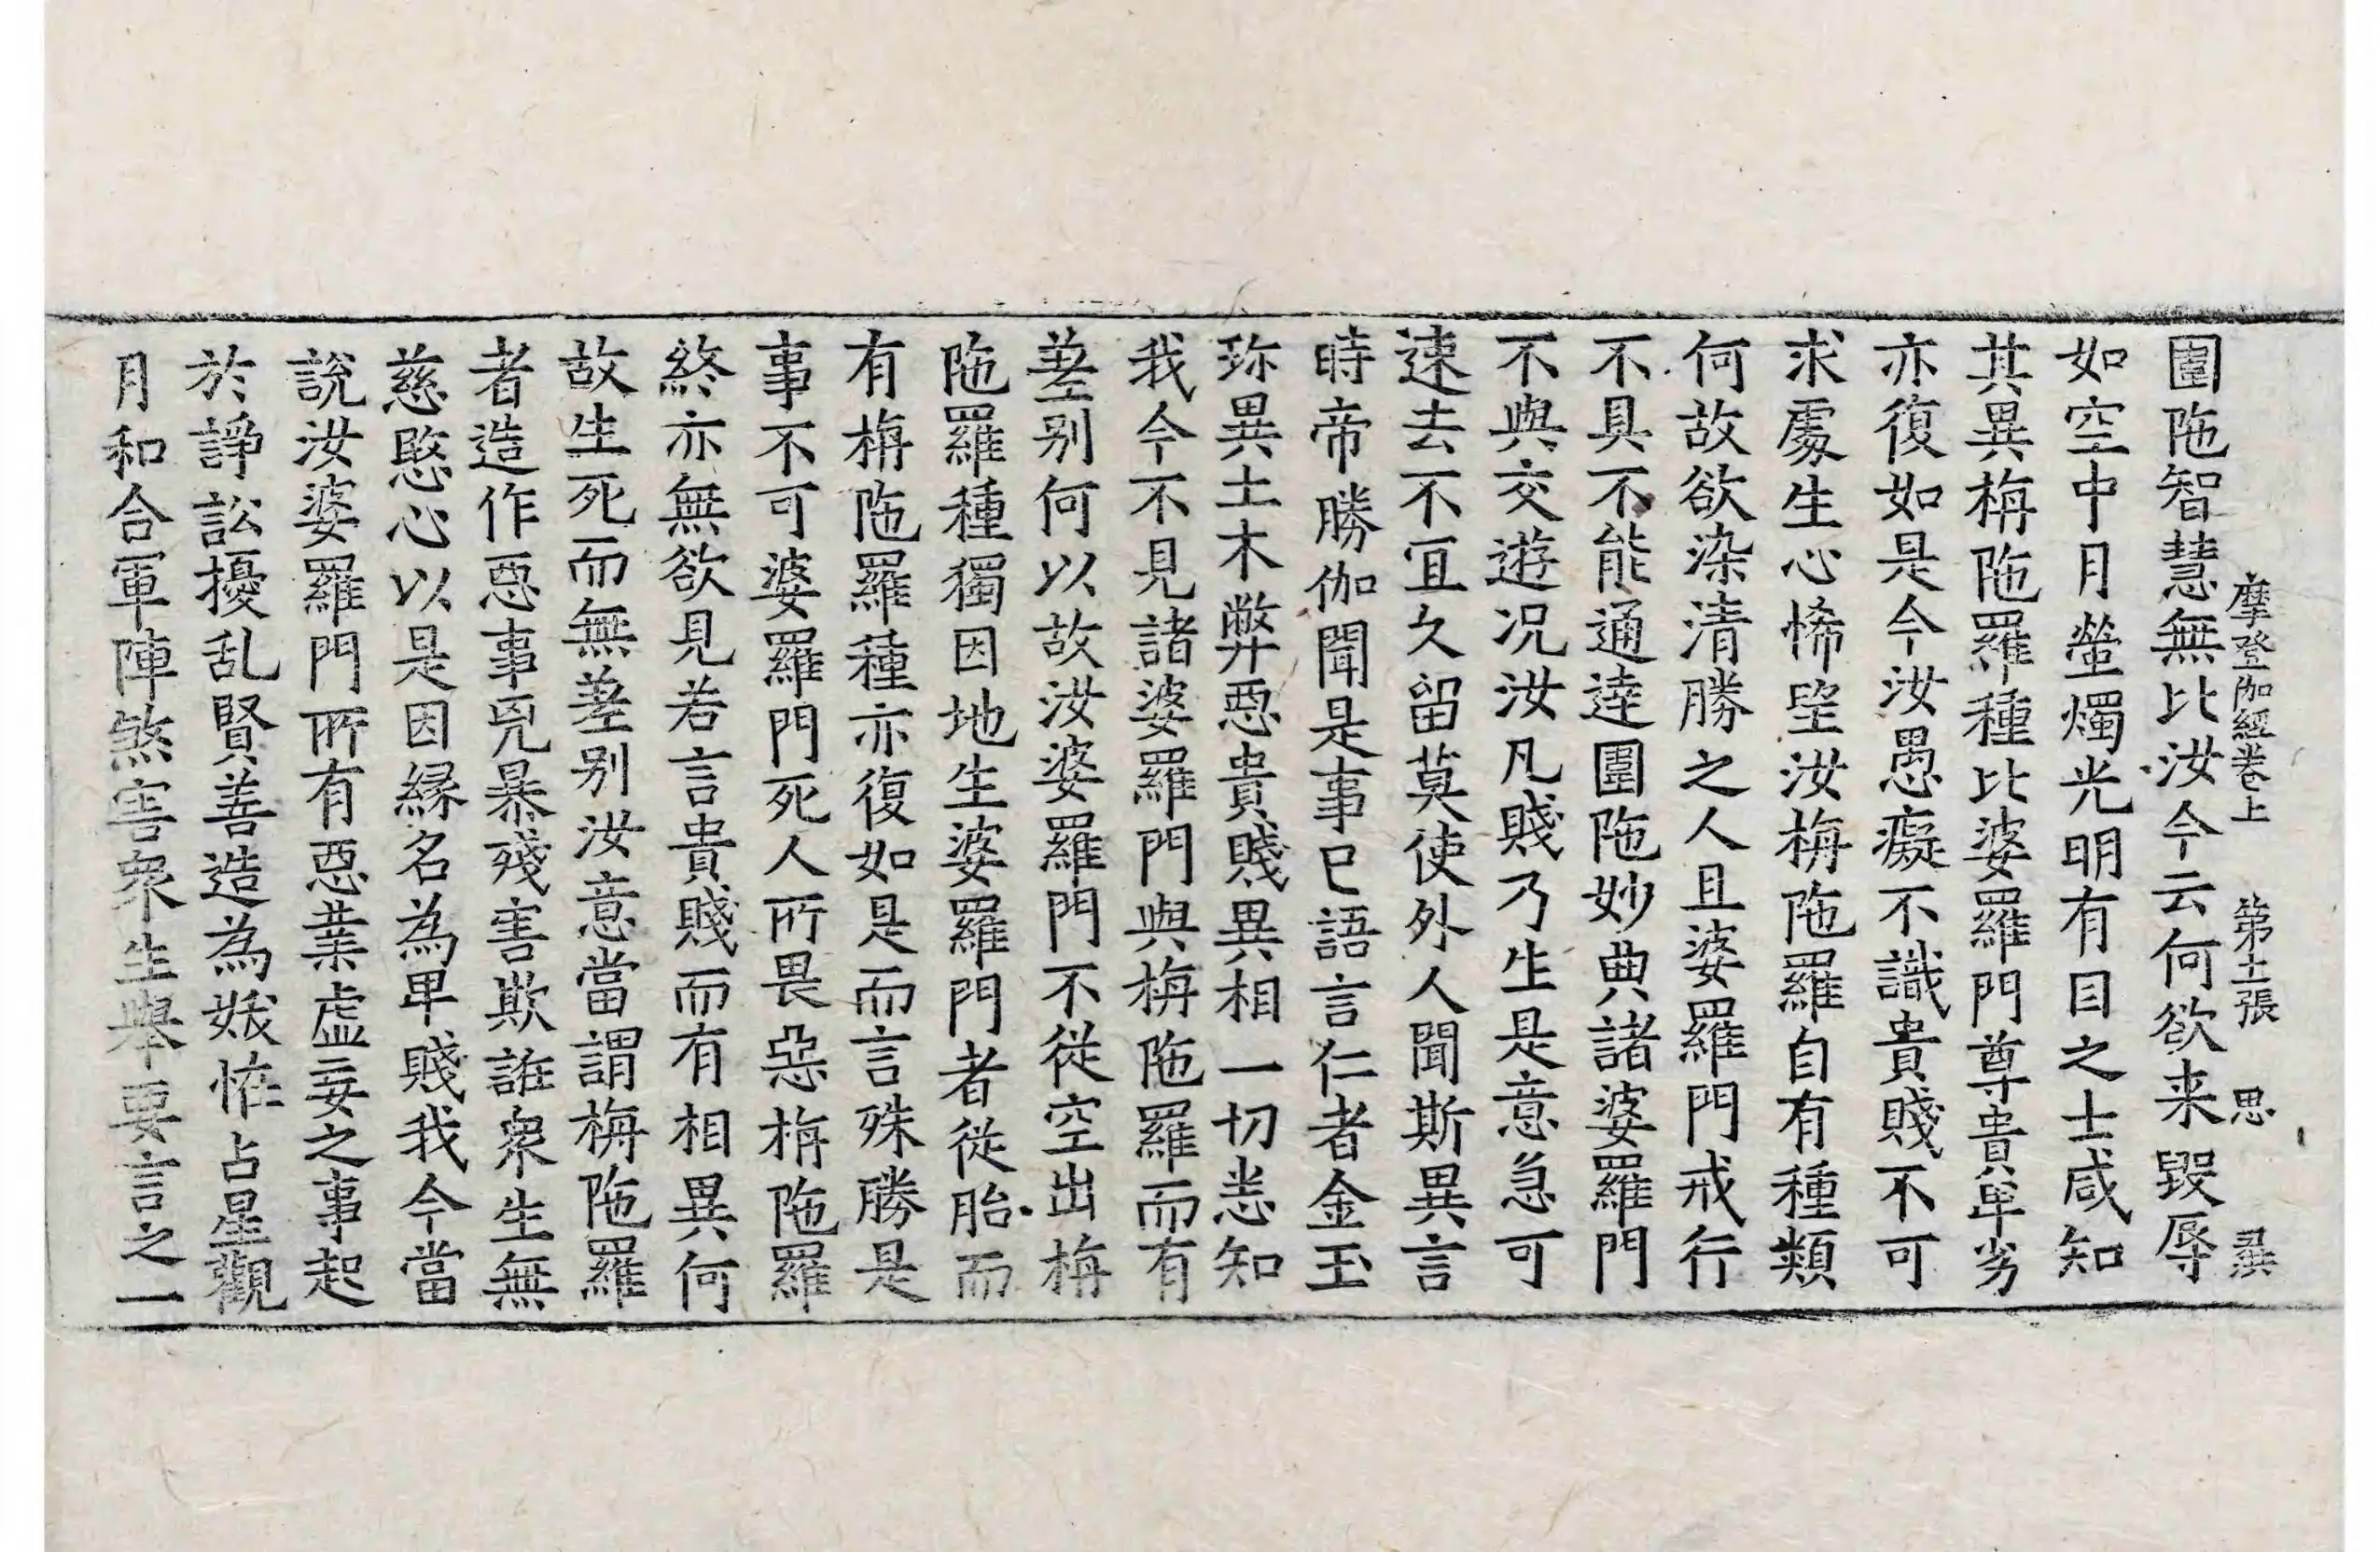 摩登伽經卷上　第十二張　思　異
圍陁智慧無比汝今云何欲来毀辱
如空中月螢燭光明有目之士咸知
其異栴陁羅種比婆羅門尊貴卑劣
亦復如是今汝愚癡不識貴賤不可
求處生心悕望汝栴陁羅自有種類
何故欲染清勝之人且婆羅門戒行
不具不能通達圍陁妙典諸婆羅門
不與交遊况汝凡賤乃生是意急可
速去不宜久留莫使外人聞斯異言
時帝勝伽聞是事已語言仁者金玉
珎異土木弊惡貴賤異相一切悉知
我今不見諸婆羅門與栴陁羅而有
差别何以故汝婆羅門不從空出栴
陁羅種獨因地生婆羅門者從胎而
有栴陁羅種亦復如是而言殊勝是
事不可婆羅門死人所畏惡栴陁羅
終亦無欲見若言貴賤而有相異何
故生死而無差别汝意當謂栴陁羅
者造作惡事兇暴殘害欺誑衆生無
慈愍心以是因緣名為卑賤我今當
說汝婆羅門所有惡業虛妄之事起
於諍訟擾乱賢善造為妖恠占星觀
月和合軍陣煞害衆生舉要言之一